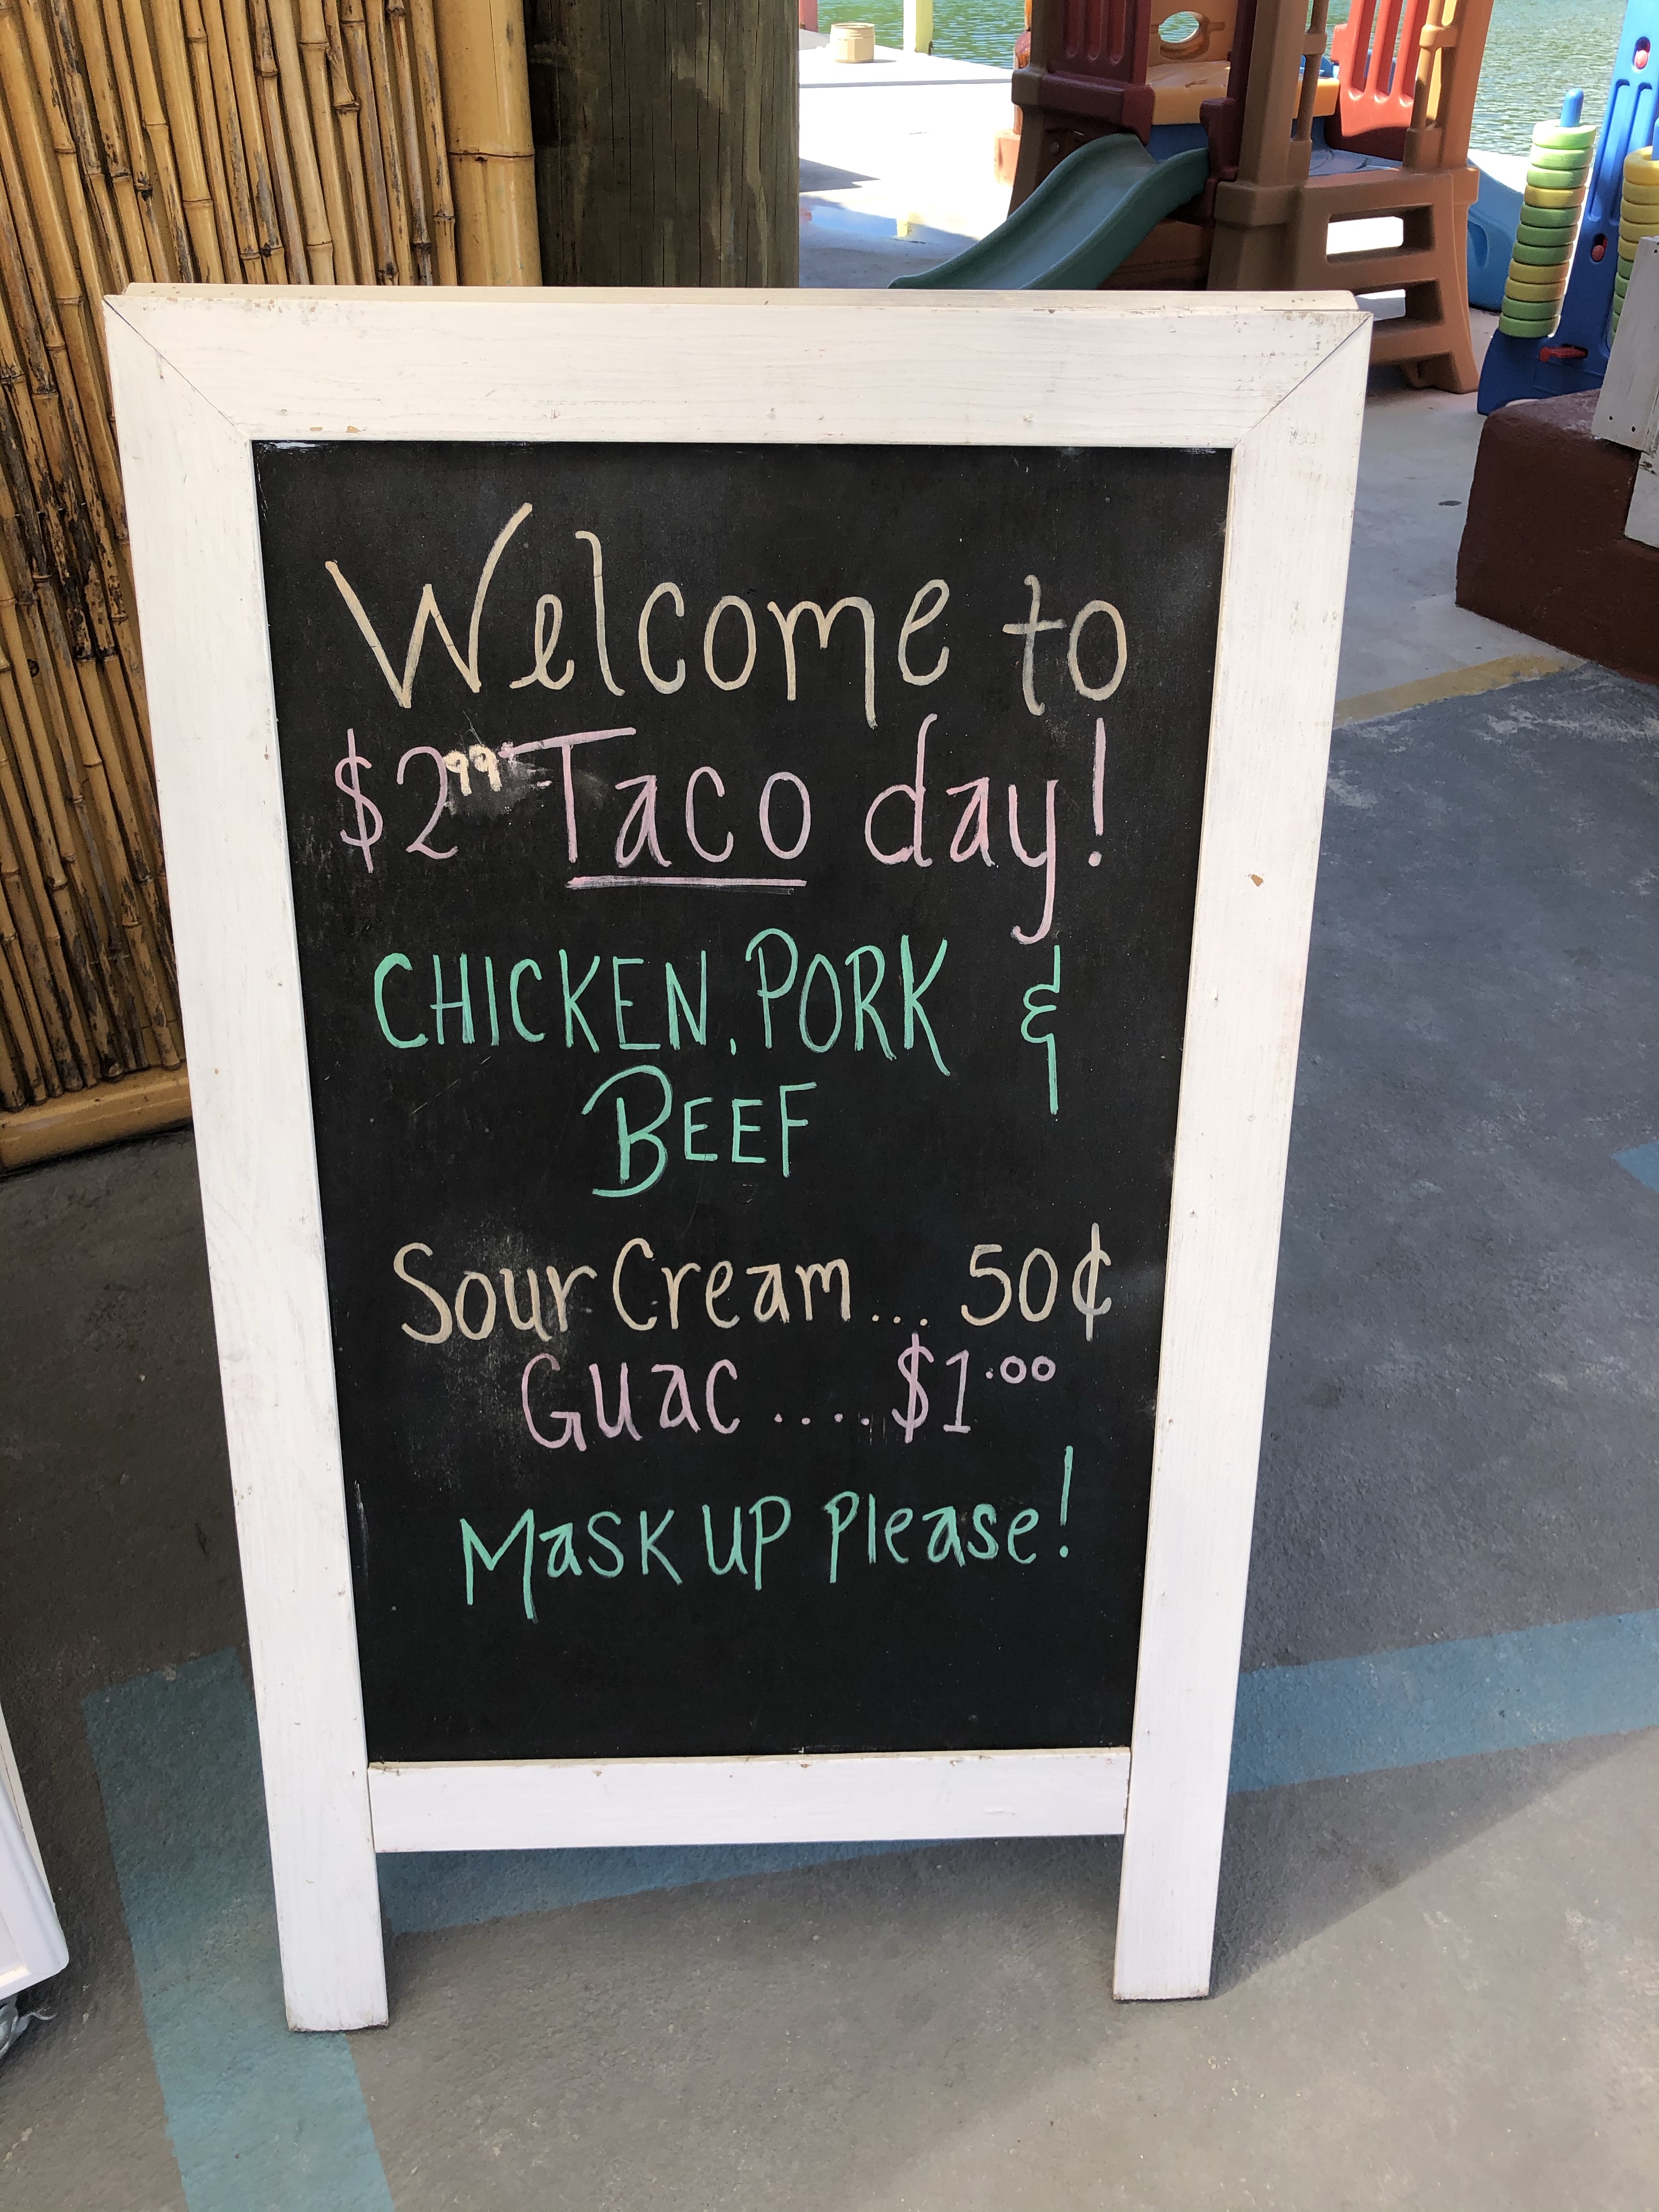 Welcome to
$2.99 Taco day!
CHICKEN, PORK &
BEEF
Sour Cream... 50¢
Guac .... $1.00
Mask up Please!